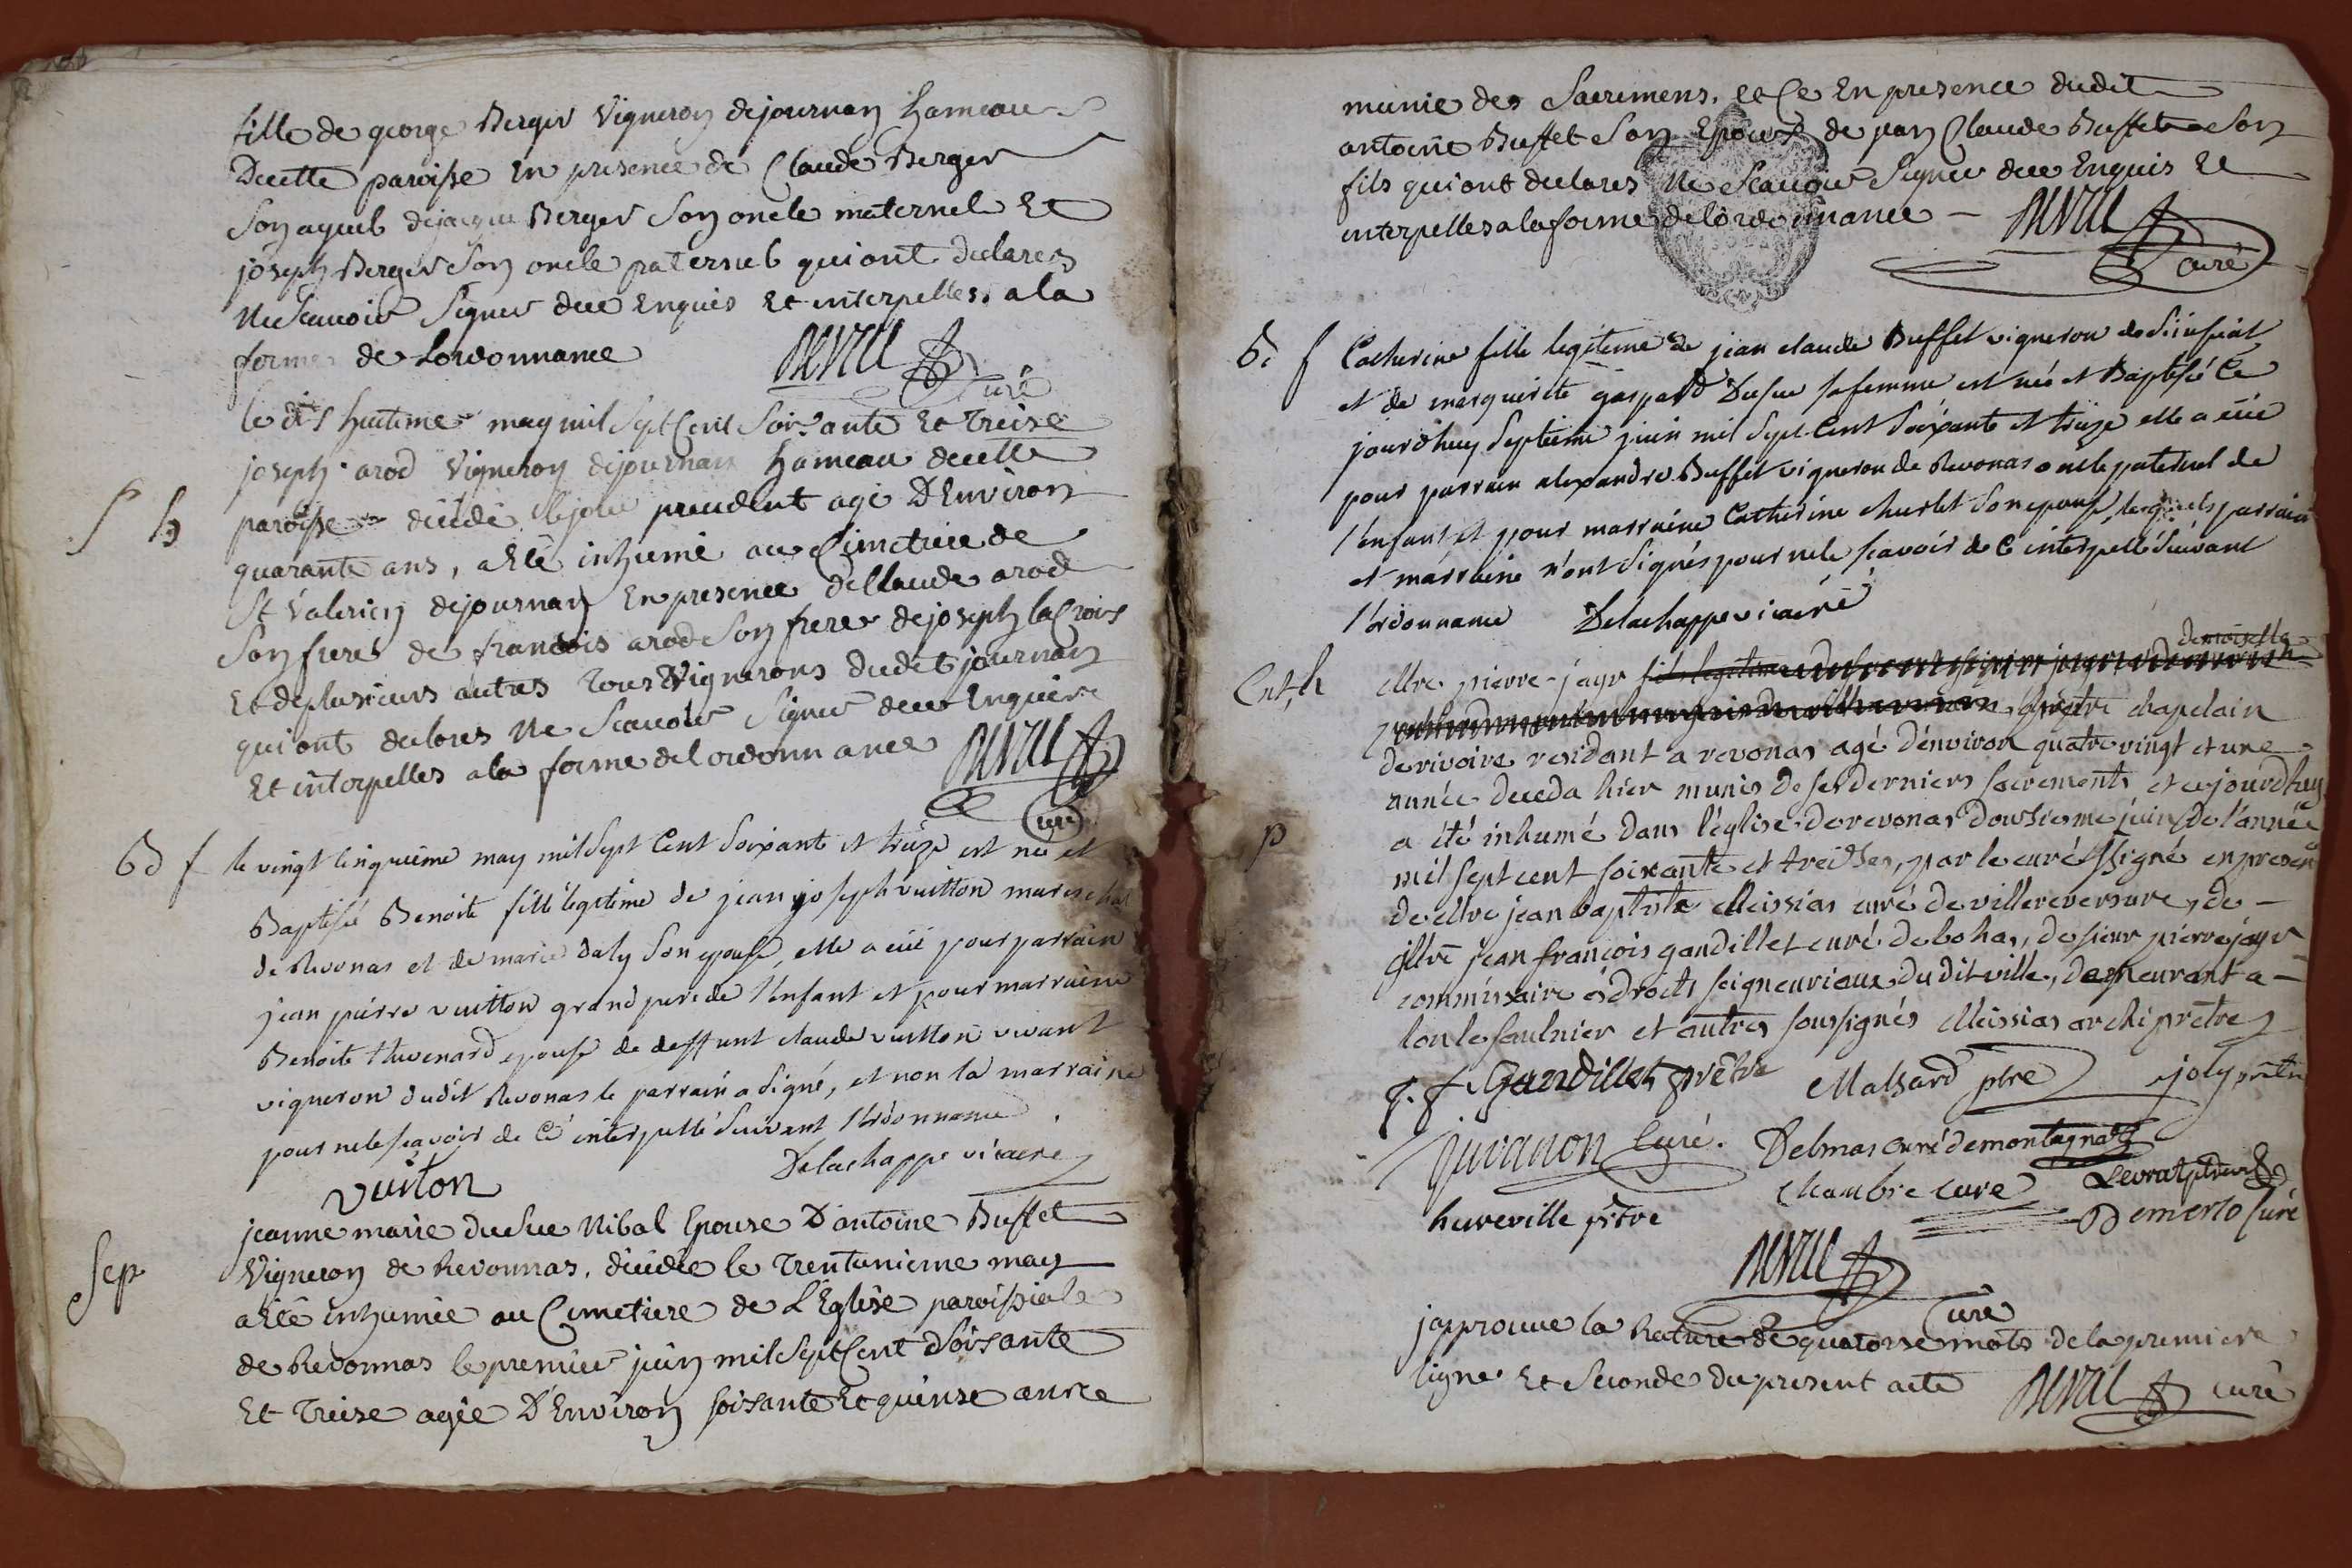 fille de george Berger Vigneron dejournan hameau
Decette paroisse En presence de Claude Berger
Son ayeul dejacque Berger Son oncle maternel Et
joseph Berger Son oncle paternel qui ont declarés
Ne Scauoir Signer dece Enquis Et interpellés. a la
forme de Lordonnance
Curé
le dis huitieme may mil Sept Cent Soixante Et Treise
joseph arod Vigneron dejournan hameau decette
S h
paroisse décédé le jour precedent agé D'Environ
quarante ans, a Eté inhumé au Cimetiere de
St Valerien dejournan En presence deClaude arod
Son frere de francois arod Son frere dejoseph laCroix
Et deplusieurs autres Tous Vignerons dudit journan
qui ont declarés Ne Scauoir Signer dece Enquis
Et interpellés ala forme delordonnance
Curé
Bd f
le vingt cinquieme may mil Sept Cent Soixante et treize est née et
Baptisée Benoite fille légitime de jean joseph vuitton mareschal
de Revonas et de marie daly Son epouse, elle a eüe pour parrain
jean pierre vuitton grand pere de l'enfant et pour marraine
Benoite thevenard epouse de deffunt claude vuitton vivant
vigneron dudit Revonas le parrain a Signé, et non la marraine
pour ne le scavoir de Ce interpellé Suivant l'ordonnance
Delachappe vicaire
Vuiton
Sep
jeanne marie duSue Nibal Epouse D'antoine Buffet
Vigneron de Revonnas, décédée le Trentunieme may
a Eté inhumée au Cimetiere de L'Eglise paroissiale
de Revonnas le premier juin mil Sept Cent Soisante
Et Treise agée D'Environ soisante Et quinse année
munie des Sacremens. et Ce En presence dudit
antoine Buffet Son Epoux de jean Claude Buffet Son
fils qui ont declarés Ne Scauoir Signer dece Enquis Et
interpellés a la forme de lordonnance
Curé
B. f
Catherine fille legiteme de jean claude Buffet vigneron de
et de marguerite gaspard Dusue Sa femme est née et Baptisée Ce
jourdhuy Septieme juin mil Sept Cent Soixante et treize elle a eüe
pour parrain alexandre Buffet vigneron de Revonas oncle paternel de
l'enfant et pour marraine Catherine Son epouse, lesquels parrain
et marraine n'ont Signés pour ne le scavoir de Ce interpellé Suivant
l'ordonnance Delachappe vicaire
demoiselle
Mre pierre jayr fils legitime
prêtre chapelain
de rivoire residant a revonas agé d'environ quatre vingt et une
année deceda hier munis de ses derniers sacrements et cejourdhuy
p
a été inhumé dans l'église de revonas douzième juin de l'année
mil sept cent soixante et treize, par le curé ssigné en presence
de Mre jean baptiste Meissias curé de villereversure, de
Mre jean françois gandillet curé de bohas, de sieur pierre jayr
commissaire es droits seigneuriaux du dit ville, demeurant a
lon le saulnier et autres soussignés Meissias archiprêtre
J. f. Gandillet prêtre Malsard ptre joly prêtre
juvanon Curé. Delmas curé de montagna
heureville prêtre chambre cure
Curé
japprouve la Rature de quatorse mots de la premiere
ligne Et Seconde du present acte
curé